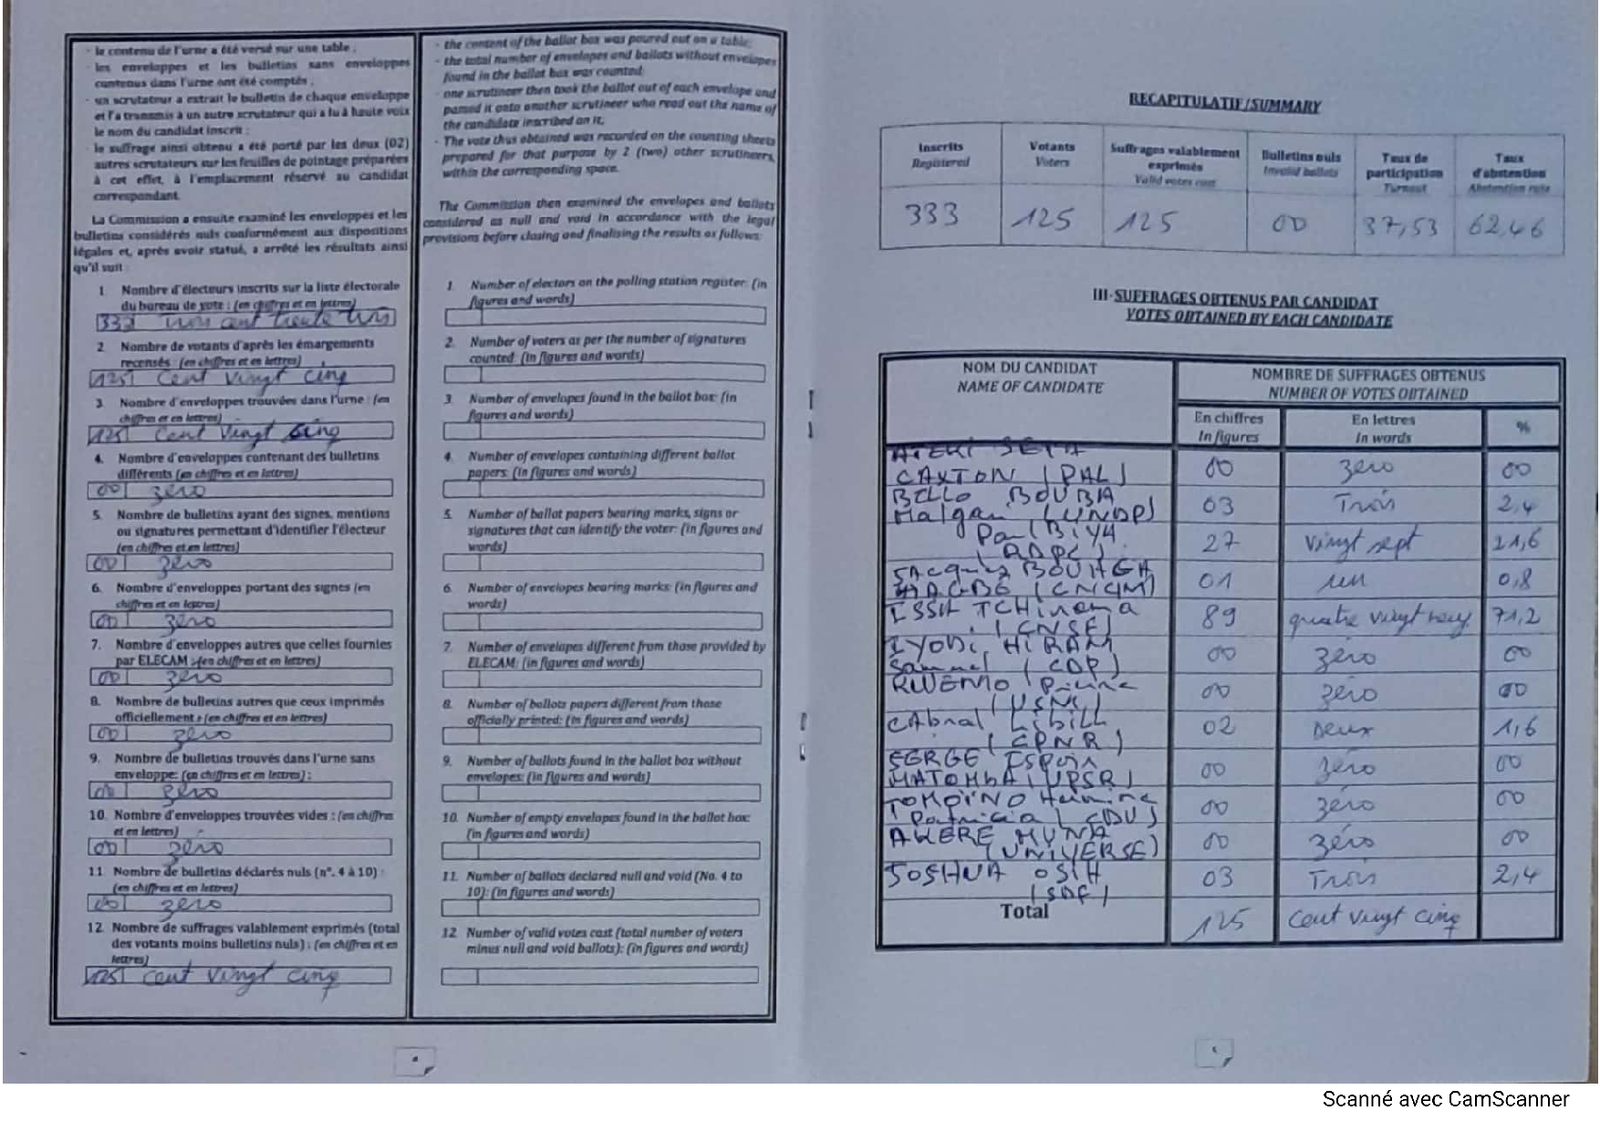 - le contenu de l'urne a été versé sur une table ;
- les enveloppes et les bulletins sans enveloppes
contenus dans l'urne ont été comptés ;
- un scrutateur a extrait le bulletin de chaque enveloppe
et l'a transmis à un autre scrutateur qui a lu à haute voix
le nom du candidat inscrit ;
- le suffrage ainsi obtenu a été porté par les deux (02)
autres scrutateurs sur les feuilles de pointage préparées
à cet effet, à l'emplacement réservé au candidat
correspondant.
La Commission a ensuite examiné les enveloppes et les
bulletins considérés nuls conformément aux dispositions
légales et, après avoir statué, a arrêté les résultats ainsi
qu'il suit :
1. Nombre d'électeurs inscrits sur la liste électorale
du bureau de vote : (en chiffres et en lettres)
333 Trois cent trente trois
2. Nombre de votants d'après les émargements
recensés : (en chiffres et en lettres)
125 Cent vingt cinq
3. Nombre d'enveloppes trouvées dans l'urne : (en
chiffres et en lettres)
125 Cent vingt cinq
4. Nombre d'enveloppes contenant des bulletins
différents (en chiffres et en lettres)
00 zéro
5. Nombre de bulletins ayant des signes, mentions
ou signatures permettant d'identifier l'électeur
(en chiffres et en lettres)
00 zéro
6. Nombre d'enveloppes portant des signes (en
chiffres et en lettres)
00 zéro
7. Nombre d'enveloppes autres que celles fournies
par ELECAM (en chiffres et en lettres)
00 zéro
8. Nombre de bulletins autres que ceux imprimés
officiellement (en chiffres et en lettres)
00 zéro
9. Nombre de bulletins trouvés dans l'urne sans
enveloppe: (en chiffres et en lettres) :
00 zéro
10. Nombre d'enveloppes trouvées vides : (en chiffres
et en lettres)
00 zéro
11. Nombre de bulletins déclarés nuls (n°. 4 à 10) :
(en chiffres et en lettres)
00 zéro
12. Nombre de suffrages valablement exprimés (total
des votants moins bulletins nuls) : (en chiffres et en
lettres)
125 cent vingt cinq
- the content of the ballot box was poured out on a table;
- the total number of envelopes and ballots without envelopes
found in the ballot box was counted;
- one scrutineer then took the ballot out of each envelope and
passed it onto another scrutineer who read out the name of
the candidate inscribed on it;
- The vote thus obtained was recorded on the counting sheets
prepared for that purpose by 2 (two) other scrutineers,
within the corresponding space.
The Commission then examined the envelopes and ballots
considered as null and void in accordance with the legal
provisions before closing and finalising the results as follows:
1. Number of electors on the polling station register: (in
figures and words)
2. Number of voters as per the number of signatures
counted: (in figures and words)
3. Number of envelopes found in the ballot box: (in
figures and words)
4. Number of envelopes containing different ballot
papers: (in figures and words)
5. Number of ballot papers bearing marks, signs or
signatures that can identify the voter: (in figures and
words)
6. Number of envelopes bearing marks: (in figures and
words)
7. Number of envelopes different from those provided by
ELECAM: (in figures and words)
8. Number of ballots papers different from those
officially printed: (in figures and words)
9. Number of ballots found in the ballot box without
envelopes: (in figures and words)
10. Number of empty envelopes found in the ballot box:
(in figures and words)
11. Number of ballots declared null and void (No. 4 to
10): (in figures and words)
12. Number of valid votes cast (total number of voters
minus null and void ballots): (in figures and words)
RECAPITULATIF/SUMMARY
Inscrits Registered Votants Voters Suffrages valablement exprimés Valid votes cast Bulletins nuls Invalid ballots Taux de participation Turnout Taux d'abstention Abstention rate
333 125 125 00 37,53 62,46
III-SUFFRAGES OBTENUS PAR CANDIDAT
VOTES OBTAINED BY EACH CANDIDATE
NOM DU CANDIDAT NOMBRE DE SUFFRAGES OBTENUS
NAME OF CANDIDATE NUMBER OF VOTES OBTAINED
En chiffres En lettres %
In figures In words
ATEKI SETA
CAXTON (PAL) 00 zéro 00
BELLO BOUBA
Maïgari (UNDP) 03 Trois 2,4
Paul BIYA
(RDPC) 27 vingt sept 21,6
JACques BOUHGA
HAGBE (CNCM) 01 un 0,8
ISSA TCHiroma
(FNSE) 89 quatre vingt neuf 71,2
IYODI HIRAM
Samuel (CDP) 00 zéro 00
KWEMO Pierre
(UMS) 00 zéro 00
CAbral Libill
(CPNR) 02 Deux 1,6
SERGE ESpoir
MATOMBA (UPSR) 00 zéro 00
TOMAÏNO Hermine
Patricia (CDU) 00 zéro 00
AKERE MUNA
(UNIVERSE) 00 zéro 00
JOSHUA OSIH
(SDF) 03 Trois 2,4
Total 125 cent vingt cinq
Scanné avec CamScanner